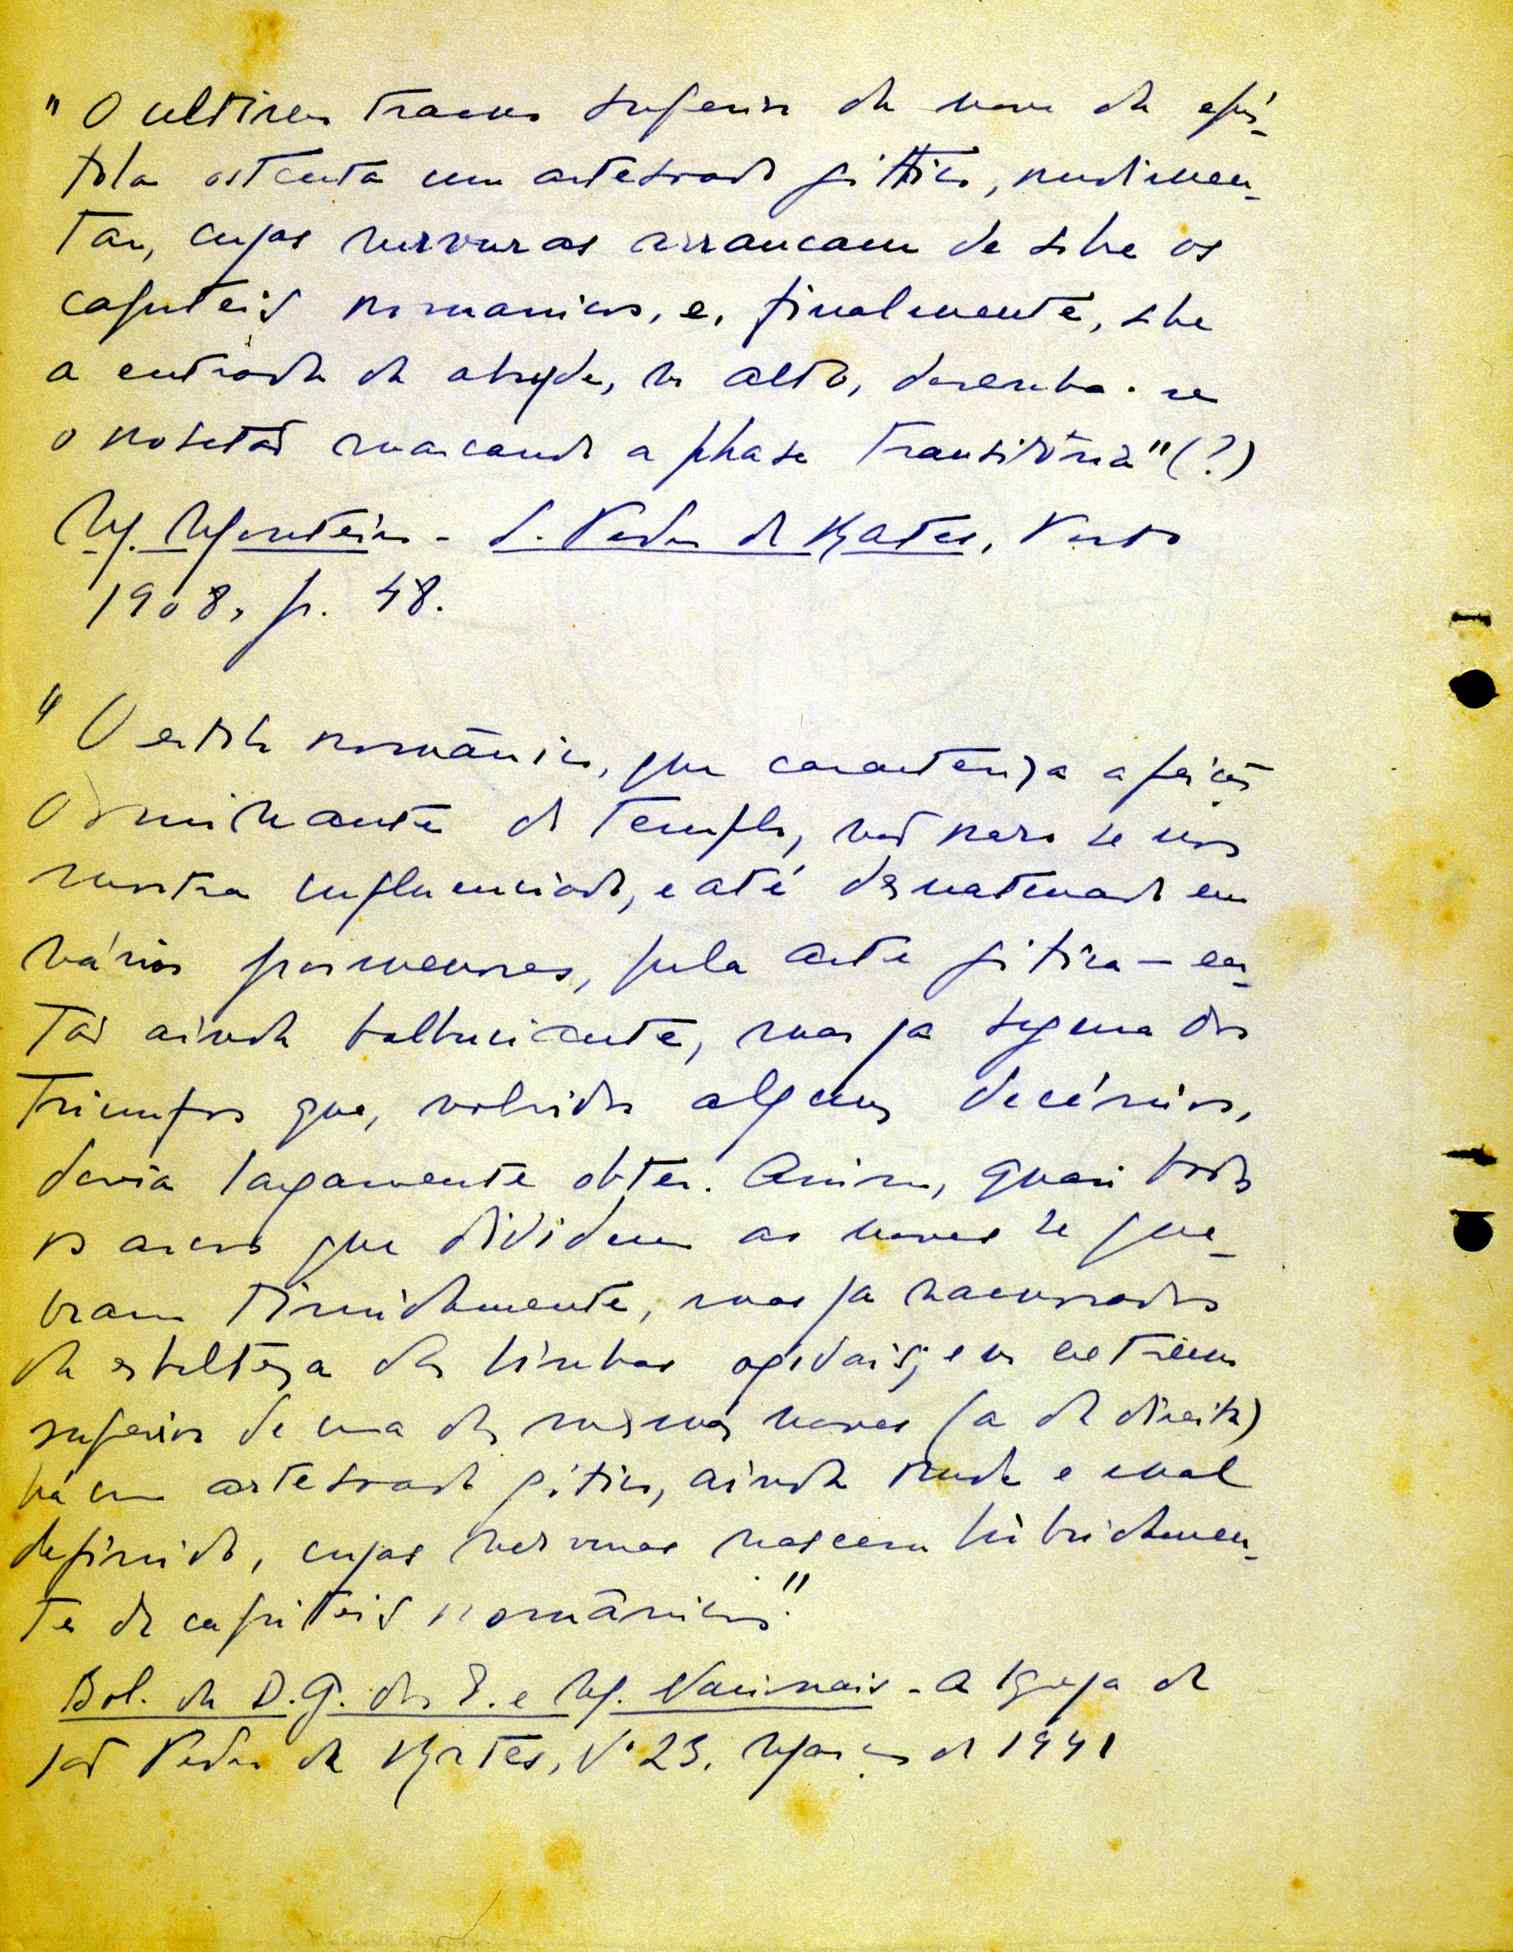 "O ultimo tramo superior da nave da epís-
tola ostenta um artesoado gothico, rudimen-
tar, cujas nervuras arrancam de sobre os
capiteis romanicos, e, finalmente, sobre
a entrada da abside, no alto, desenha-se
o rosetão marcando a phase transitória" (?)
M. Monteiro - S. Pedro de Rates, Porto
1908, p. 48.
"O estilo românico, que caracteriza a feição
dominante do templo, não raro se nos
mostra influenciado, e até desnaturado em
vários pormenores, pela arte gótica — en-
tão ainda balbuciante, mas já segura dos
triunfos que, volvidos alguns decénios,
devia largamente obter. Assim, quasi todos
os arcos que dividem as naves se que-
bram timidamente, mas já namorados
da esbelteza das linhas ogivais; e no extremo
superior de uma das mesmas naves (a da direita)
há um artesoado gótico, ainda rude e mal
definido, cujas nervuras nascem hibridamen-
te de capiteis românicos."
Bol. da D. G. dos E. e M. Nacionais - A Igreja de
São Pedro de Rates, Nº 23. Março de 1941